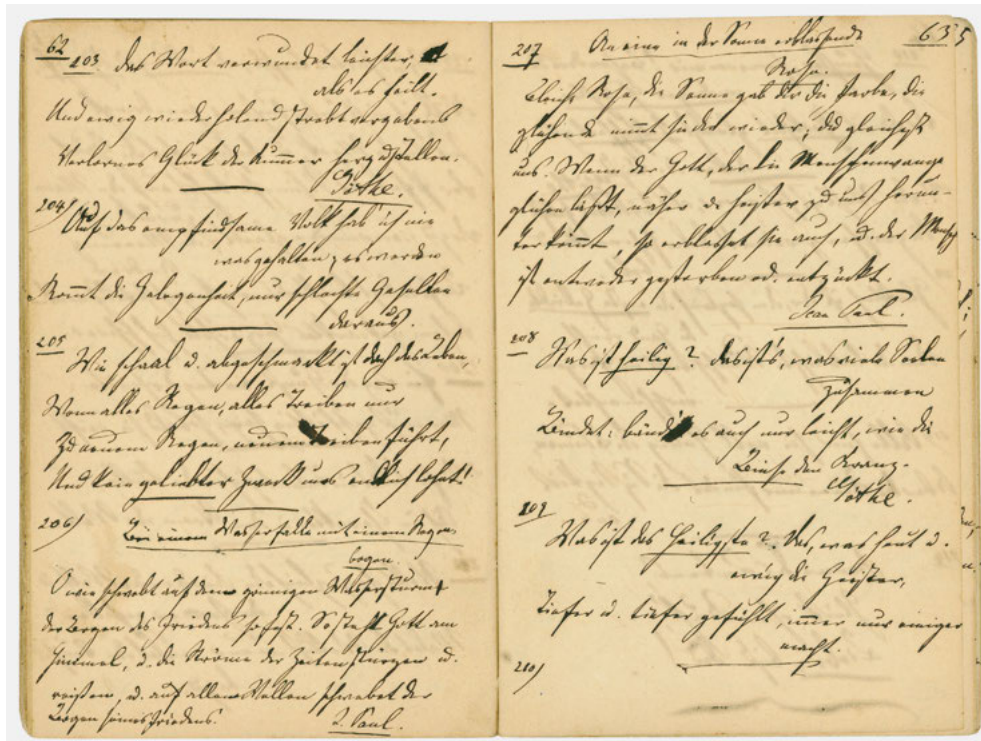 62
203. Das Wort verwundet leichter,
als es heilt.
Und ewig wiederholend strebt vergebens
Verlornes Glück der Kummer herzustellen.
Göthe.
204) Auf das empfindsame Volk hab' ich nie
was gehalten; es werden
Kommt die Gelegenheit, nur schlechte Gesellen
daraus.
205
Wie schaal u. abgeschmackt ist doch das Leben,
Wenn alles Regen, alles Treiben nur
Zu neuem Regen, neuem Treiben führt,
Und kein geliebter Zweck uns endlich lohnt!
206)
Bei einem Wasserfalle mit einem Regen-
bogen.
O wie schwebt auf dem grimmigen Wassersturm
der Bogen des Friedens so fest. So steht Gott am
Himmel, u. die Ströme der Zeiten stürzen u.
reißen, u. auf allen Wellen schwebet der
Bogen seines Friedens.
J. Paul.
635
207
An eine in der Sonne erblassende
Rose.
Bleiche Rose, die Sonne gab dir die Farbe, die
glühende nimmt sie dir wieder; du gleichest
uns. Wenn der Gott, der die Menschenwange
glühen läßt, näher u. heißer zu uns herun-
terkömmt, so erblasset sie auch, u. der Mensch
ist entweder gestorben od. entzückt.
Jean Paul.
208
Was ist heilig? Das ist's, was viele Seelen
zusammen
Bindet; bänd' es auch nur leicht, wie die
Binse den Kranz.
Göthe.
209
Was ist das Heiligste? Das, was heut u.
ewig die Geister,
Tiefer u. tiefer gefühlt, immer nur einiger
macht.
210)